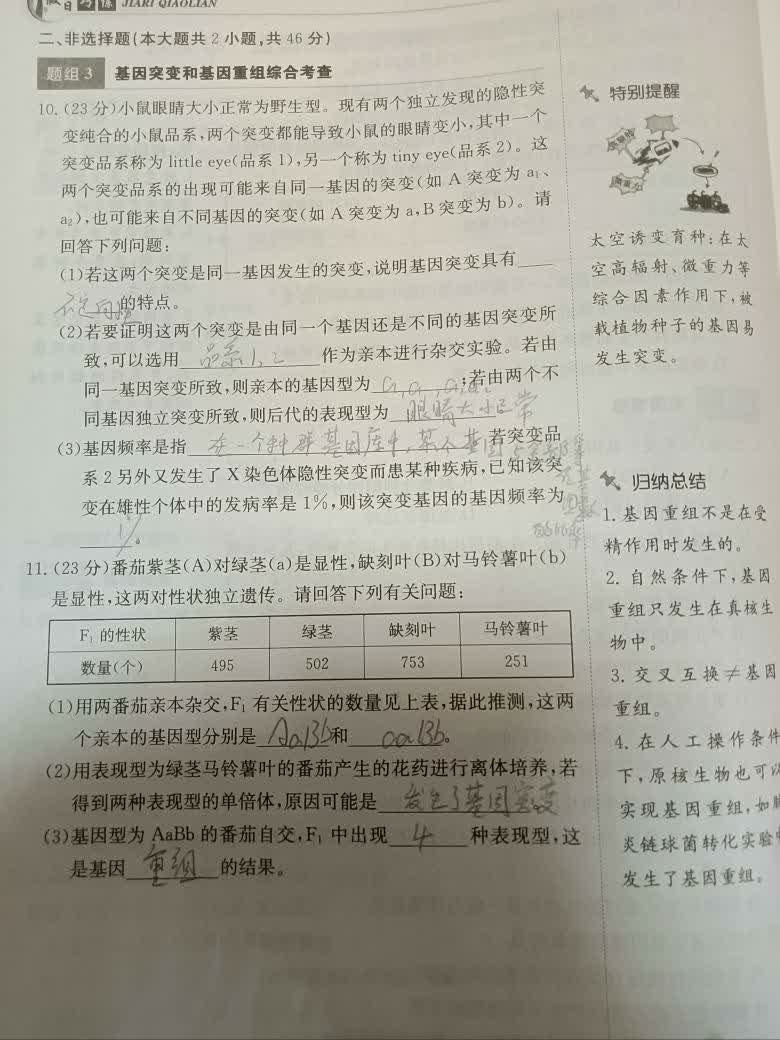 假日巧练 JIARI QIAOLIAN
二、非选择题(本大题共 2 小题,共 46 分)
题组 3 基因突变和基因重组综合考查
10.(23 分)小鼠眼睛大小正常为野生型。现有两个独立发现的隐性突
变纯合的小鼠品系,两个突变都能导致小鼠的眼睛变小,其中一个
突变品系称为 little eye(品系 1),另一个称为 tiny eye(品系 2)。这
两个突变品系的出现可能来自同一基因的突变(如 A 突变为 a₁、
a₂),也可能来自不同基因的突变(如 A 突变为 a,B 突变为 b)。请
回答下列问题:
(1)若这两个突变是同一基因发生的突变,说明基因突变具有____
不定向性的特点。
(2)若要证明这两个突变是由同一个基因还是不同的基因突变所
致,可以选用 品系1、2 作为亲本进行杂交实验。若由
同一基因突变所致,则亲本的基因型为 a₁a₁、a₂a₂;若由两个不
同基因独立突变所致,则后代的表现型为 眼睛大小正常
(3)基因频率是指 在一个种群基因库中,某个基因占全部等 若突变品
位基因数的比率
系 2 另外又发生了 X 染色体隐性突变而患某种疾病,已知该突
变在雄性个体中的发病率是 1%,则该突变基因的基因频率为
1%。
11.(23 分)番茄紫茎(A)对绿茎(a)是显性,缺刻叶(B)对马铃薯叶(b)
是显性,这两对性状独立遗传。请回答下列有关问题:
F₁ 的性状 紫茎 绿茎 缺刻叶 马铃薯叶
数量(个) 495 502 753 251
(1)用两番茄亲本杂交,F₁ 有关性状的数量见上表,据此推测,这两
个亲本的基因型分别是 AaBb 和 aaBb。
(2)用表现型为绿茎马铃薯叶的番茄产生的花药进行离体培养,若
得到两种表现型的单倍体,原因可能是 发生了基因突变
(3)基因型为 AaBb 的番茄自交,F₁ 中出现 4 种表现型,这
是基因 重组 的结果。
特别提醒
太空诱变育种:在太
空高辐射、微重力等
综合因素作用下,被
载植物种子的基因易
发生突变。
归纳总结
1.基因重组不是在受
精作用时发生的。
2.自然条件下,基因
重组只发生在真核生
物中。
3.交叉互换≠基因
重组。
4.在人工操作条件
下,原核生物也可以
实现基因重组,如肺
炎链球菌转化实验中
发生了基因重组。